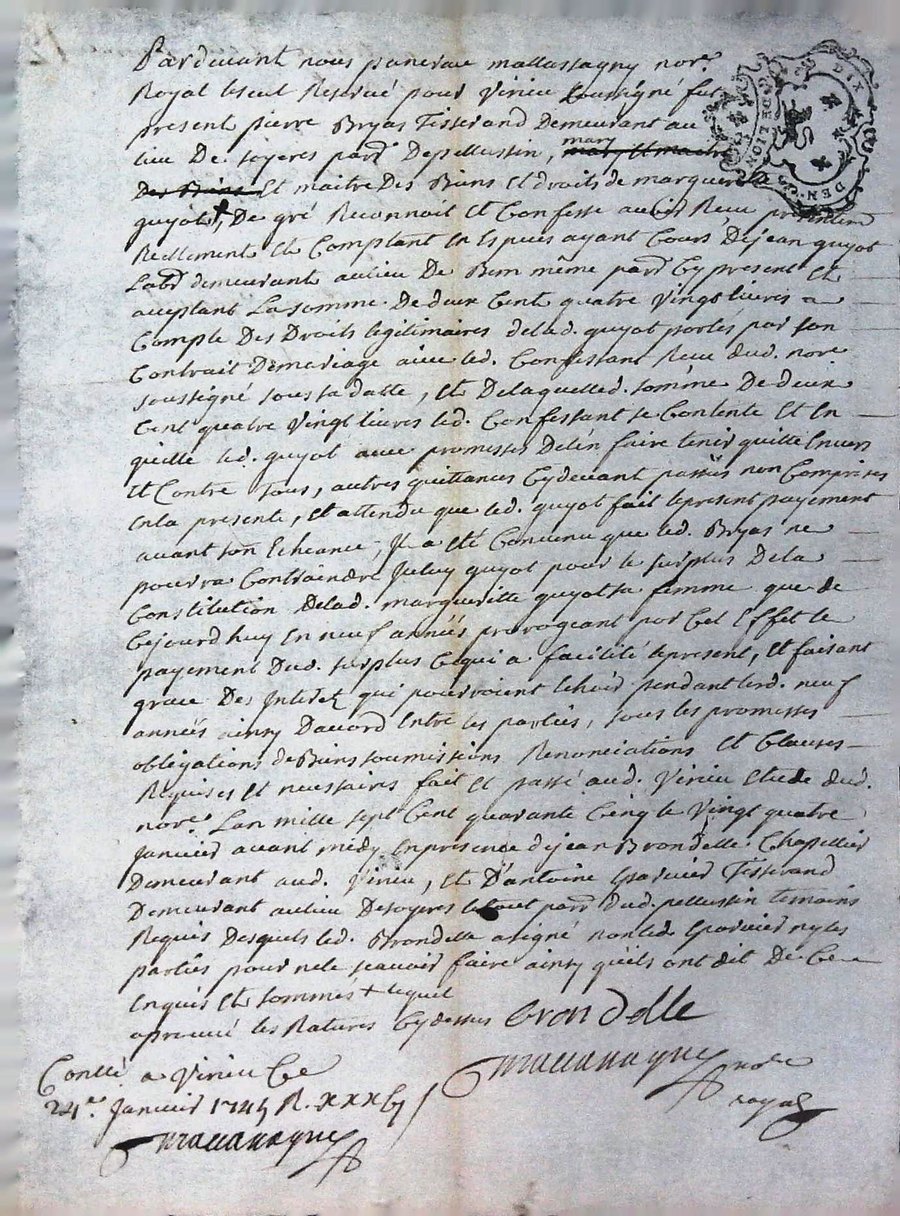 Pardevant nous pancrace mallassagny nore.
Royal seul Reservé pour Virieu soussigné fut
present pierre Bryas Tisserand Demeurant au
lieu De soyeres parr Depellussin, mary
Et maitre Des Biens Et droits de marguerite
guyot +, De gré Reconnoit Et Confesse avoir Receu presentem
Reellement Et Comptant En Especes ayant Cours Dejean guyot
Labr demeurant aulieu De même parr Cy present Et
aceptant La somme De deux Cent quatre Vingt livres a
Compte Des Droits legitimaires delad. guyot portés par son
Contrait Demariage avec led. Confessant Receu dud. nore
soussigné sous sa datte, Et Delaquelled. somme De deux
Cent quatre Vingt livres led. Confessant se Contente Et En
quitte led. guyot avec promesses Delén faire tenir quitte Envers
Et Contre Tous, autres quittances Cydevant passées non Comprises
Enla presente, Et attendu que led. guyot fait lepresent payement
avant son Echeance, Il a Eté Convenu que led. Bryas ne
pourra Contraindre Iceluy guyot pour le surplus Dela
Constitution Delad. margueritte guyot sa femme que de
Cejourd huy En neuf années prorogeant par Cet Effet le
payement Dud. surplus Cequi a facilité lepresent, Et faisant
grace Des Interet qui pourroient Echoir pendant lesd. neuf
années ainsy Dacord Entre les parties, sous les promesses
obligations de Biens soumissions Renonciations Et Clauses
Requises Et necessaires fait Et passé aud. Virieu Etude dud.
nore. Lan mille sept Cent quarante Cinq le Vingt quatre
Janvier avant midy Enpresence dejean Brondelle Chapellier
Demeurant aud. Virieu, Et D'antoine Tisserand
Demeurant aulieu Desoyeres letout parr dud. pellussin temoins
Requis Desquels led. Brondelle asigné non led. ny les
parties pour nele scavoir faire ainsy qu'ils ont dit De Ce
Enquis Et sommés + lequel
aprouvé les Ratures Cydessus Brondelle
Conllé a Virieu Ce
24me Janvier 1745 R. xxx
nore
royal
DIX
DEN.
LION